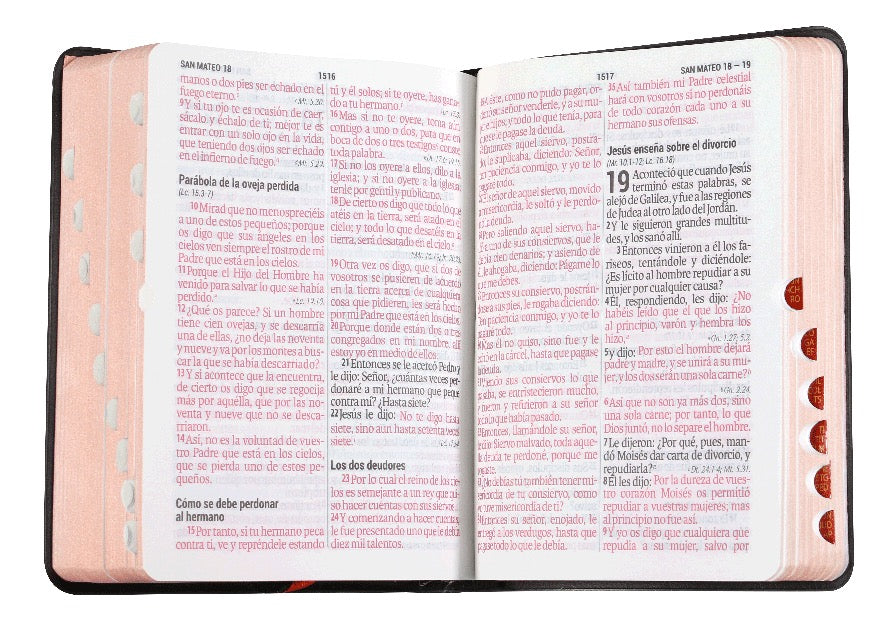 SAN MATEO 18
1516
manos o dos pies ser echado en el
fuego eterno.
9Y si tu ojo te es ocasión de caer,
sácalo y échalo de ti; mejor te es
entrar con un solo ojo en la vida,
que teniendo dos ojos ser echado
en el infierno de fuego.
Parábola de la oveja perdida
(Lc. 15.3-7)
10Mirad que no menospreciéis
a uno de estos pequeños; porque
os digo que sus ángeles en los
cielos ven siempre el rostro de mi
Padre que está en los cielos.
11Porque el Hijo del Hombre ha
venido para salvar lo que se había
perdido.
12¿Qué os parece? Si un hombre
tiene cien ovejas, y se descarría
una de ellas, ¿no deja las noventa
y nueve y va por los montes a bus-
car la que se había descarriado?
13Y si acontece que la encuentra,
de cierto os digo que se regocija
más por aquélla, que por las no-
venta y nueve que no se desca-
rriaron.
14Así, no es la voluntad de vues-
tro Padre que está en los cielos,
que se pierda uno de estos pe-
queños.
Cómo se debe perdonar
al hermano
15Por tanto, si tu hermano peca
contra ti, ve y repréndele estando
tú y él solos; si te oyere, has gana-
do a tu hermano.
16Mas si no te oyere, toma aún
contigo a uno o dos, para que en
boca de dos o tres testigos conste
toda palabra.
17Si no los oyere a ellos, dilo a la
iglesia; y si no oyere a la iglesia,
tenle por gentil y publicano.
18De cierto os digo que todo lo que
atéis en la tierra, será atado en el
cielo; y todo lo que desatéis en la
tierra, será desatado en el cielo.
19Otra vez os digo, que si dos de
vosotros se pusieren de acuerdo
en la tierra acerca de cualquiera
cosa que pidieren, les será hecho
por mi Padre que está en los cielos.
20Porque donde están dos o tres
congregados en mi nombre, allí
estoy yo en medio de ellos.
21Entonces se le acercó Pedro y
le dijo: Señor, ¿cuántas veces per-
donaré a mi hermano que peque
contra mí? ¿Hasta siete?
22Jesús le dijo: No te digo hasta
siete, sino aun hasta setenta veces
siete.
Los dos deudores
23Por lo cual el reino de los cie-
los es semejante a un rey que qui-
so hacer cuentas con sus siervos.
24Y comenzando a hacer cuentas,
le fue presentado uno que le debía
diez mil talentos.
1517
SAN MATEO 18 – 19
A éste, como no pudo pagar, or-
denó su señor venderle, y a su mu-
jer e hijos, y todo lo que tenía, para
que se le pagase la deuda.
Entonces aquel siervo, postra-
do, le suplicaba, diciendo: Señor,
ten paciencia conmigo, y yo te lo
pagaré todo.
El señor de aquel siervo, movido
a misericordia, le soltó y le perdo-
nó la deuda.
Pero saliendo aquel siervo, ha-
lló a uno de sus consiervos, que le
debía cien denarios; y asiendo de
él, le ahogaba, diciendo: Págame lo
que me debes.
Entonces su consiervo, postrán-
dose a sus pies, le rogaba diciendo:
Ten paciencia conmigo, y yo te lo
pagaré todo.
Mas él no quiso, sino fue y le
echó en la cárcel, hasta que pagase
la deuda.
Viendo sus consiervos lo que
pasaba, se entristecieron mucho,
y fueron y refirieron a su señor
todo lo que había pasado.
Entonces, llamándole su señor,
le dijo: Siervo malvado, toda aque-
lla deuda te perdoné, porque me
rogaste.
¿No debías tú también tener mi-
sericordia de tu consiervo, como
yo tuve misericordia de ti?
Entonces su señor, enojado, le
entregó a los verdugos, hasta que
pagase todo lo que le debía.
35Así también mi Padre celestial
hará con vosotros si no perdonáis
de todo corazón cada uno a su
hermano sus ofensas.
Jesús enseña sobre el divorcio
(Mr. 10.1-12; Lc. 16.18)
19 Aconteció que cuando Jesús
terminó estas palabras, se
alejó de Galilea, y fue a las regiones
de Judea al otro lado del Jordán.
2Y le siguieron grandes multitu-
des, y los sanó allí.
3Entonces vinieron a él los fa-
riseos, tentándole y diciéndole:
¿Es lícito al hombre repudiar a su
mujer por cualquier causa?
4Él, respondiendo, les dijo: ¿No
habéis leído que el que los hizo
al principio, varón y hembra los
hizo,
Gn. 1.27; 5.2.
5y dijo: Por esto el hombre dejará
padre y madre, y se unirá a su mu-
jer, y los dos serán una sola carne?
Gn. 2.24.
6Así que no son ya más dos, sino
una sola carne; por tanto, lo que
Dios juntó, no lo separe el hombre.
7Le dijeron: ¿Por qué, pues, man-
dó Moisés dar carta de divorcio, y
repudiarla?
Dt. 24.1-4; Mt. 5.31.
8Él les dijo: Por la dureza de vues-
tro corazón Moisés os permitió
repudiar a vuestras mujeres; mas
al principio no fue así.
9Y yo os digo que cualquiera que
repudia a su mujer, salvo por